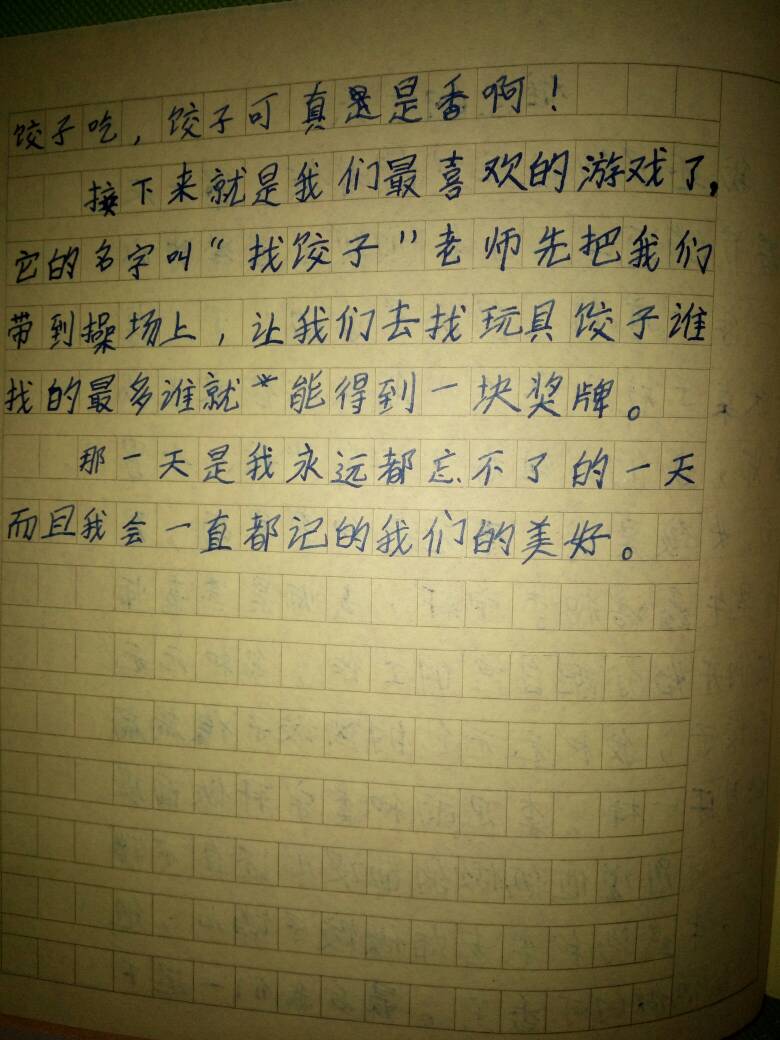 饺子吃，饺子可真是是香啊！
接下来就是我们最喜欢的游戏了，
它的名字叫“找饺子”老师先把我们
带到操场上，让我们去找玩具饺子谁
找的最多谁就能得到一块奖牌。
那一天是我永远都忘不了的一天
而且我会一直都记的我们的美好。